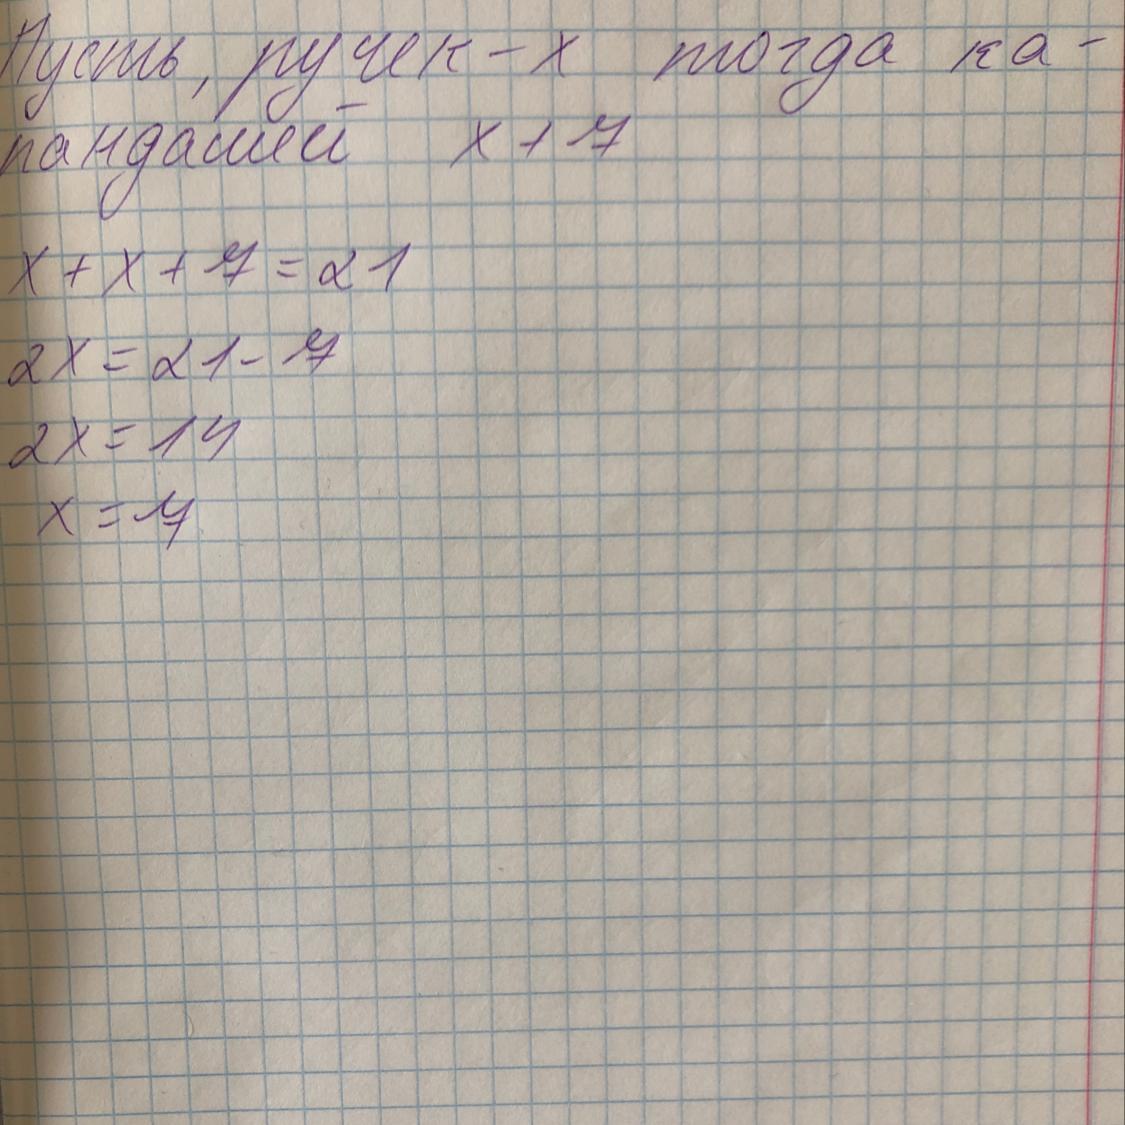 Пусть, ручек - х тогда ка-
рандашей х + 7
х + х + 7 = 21
2х = 21 - 7
2х = 14
х = 7